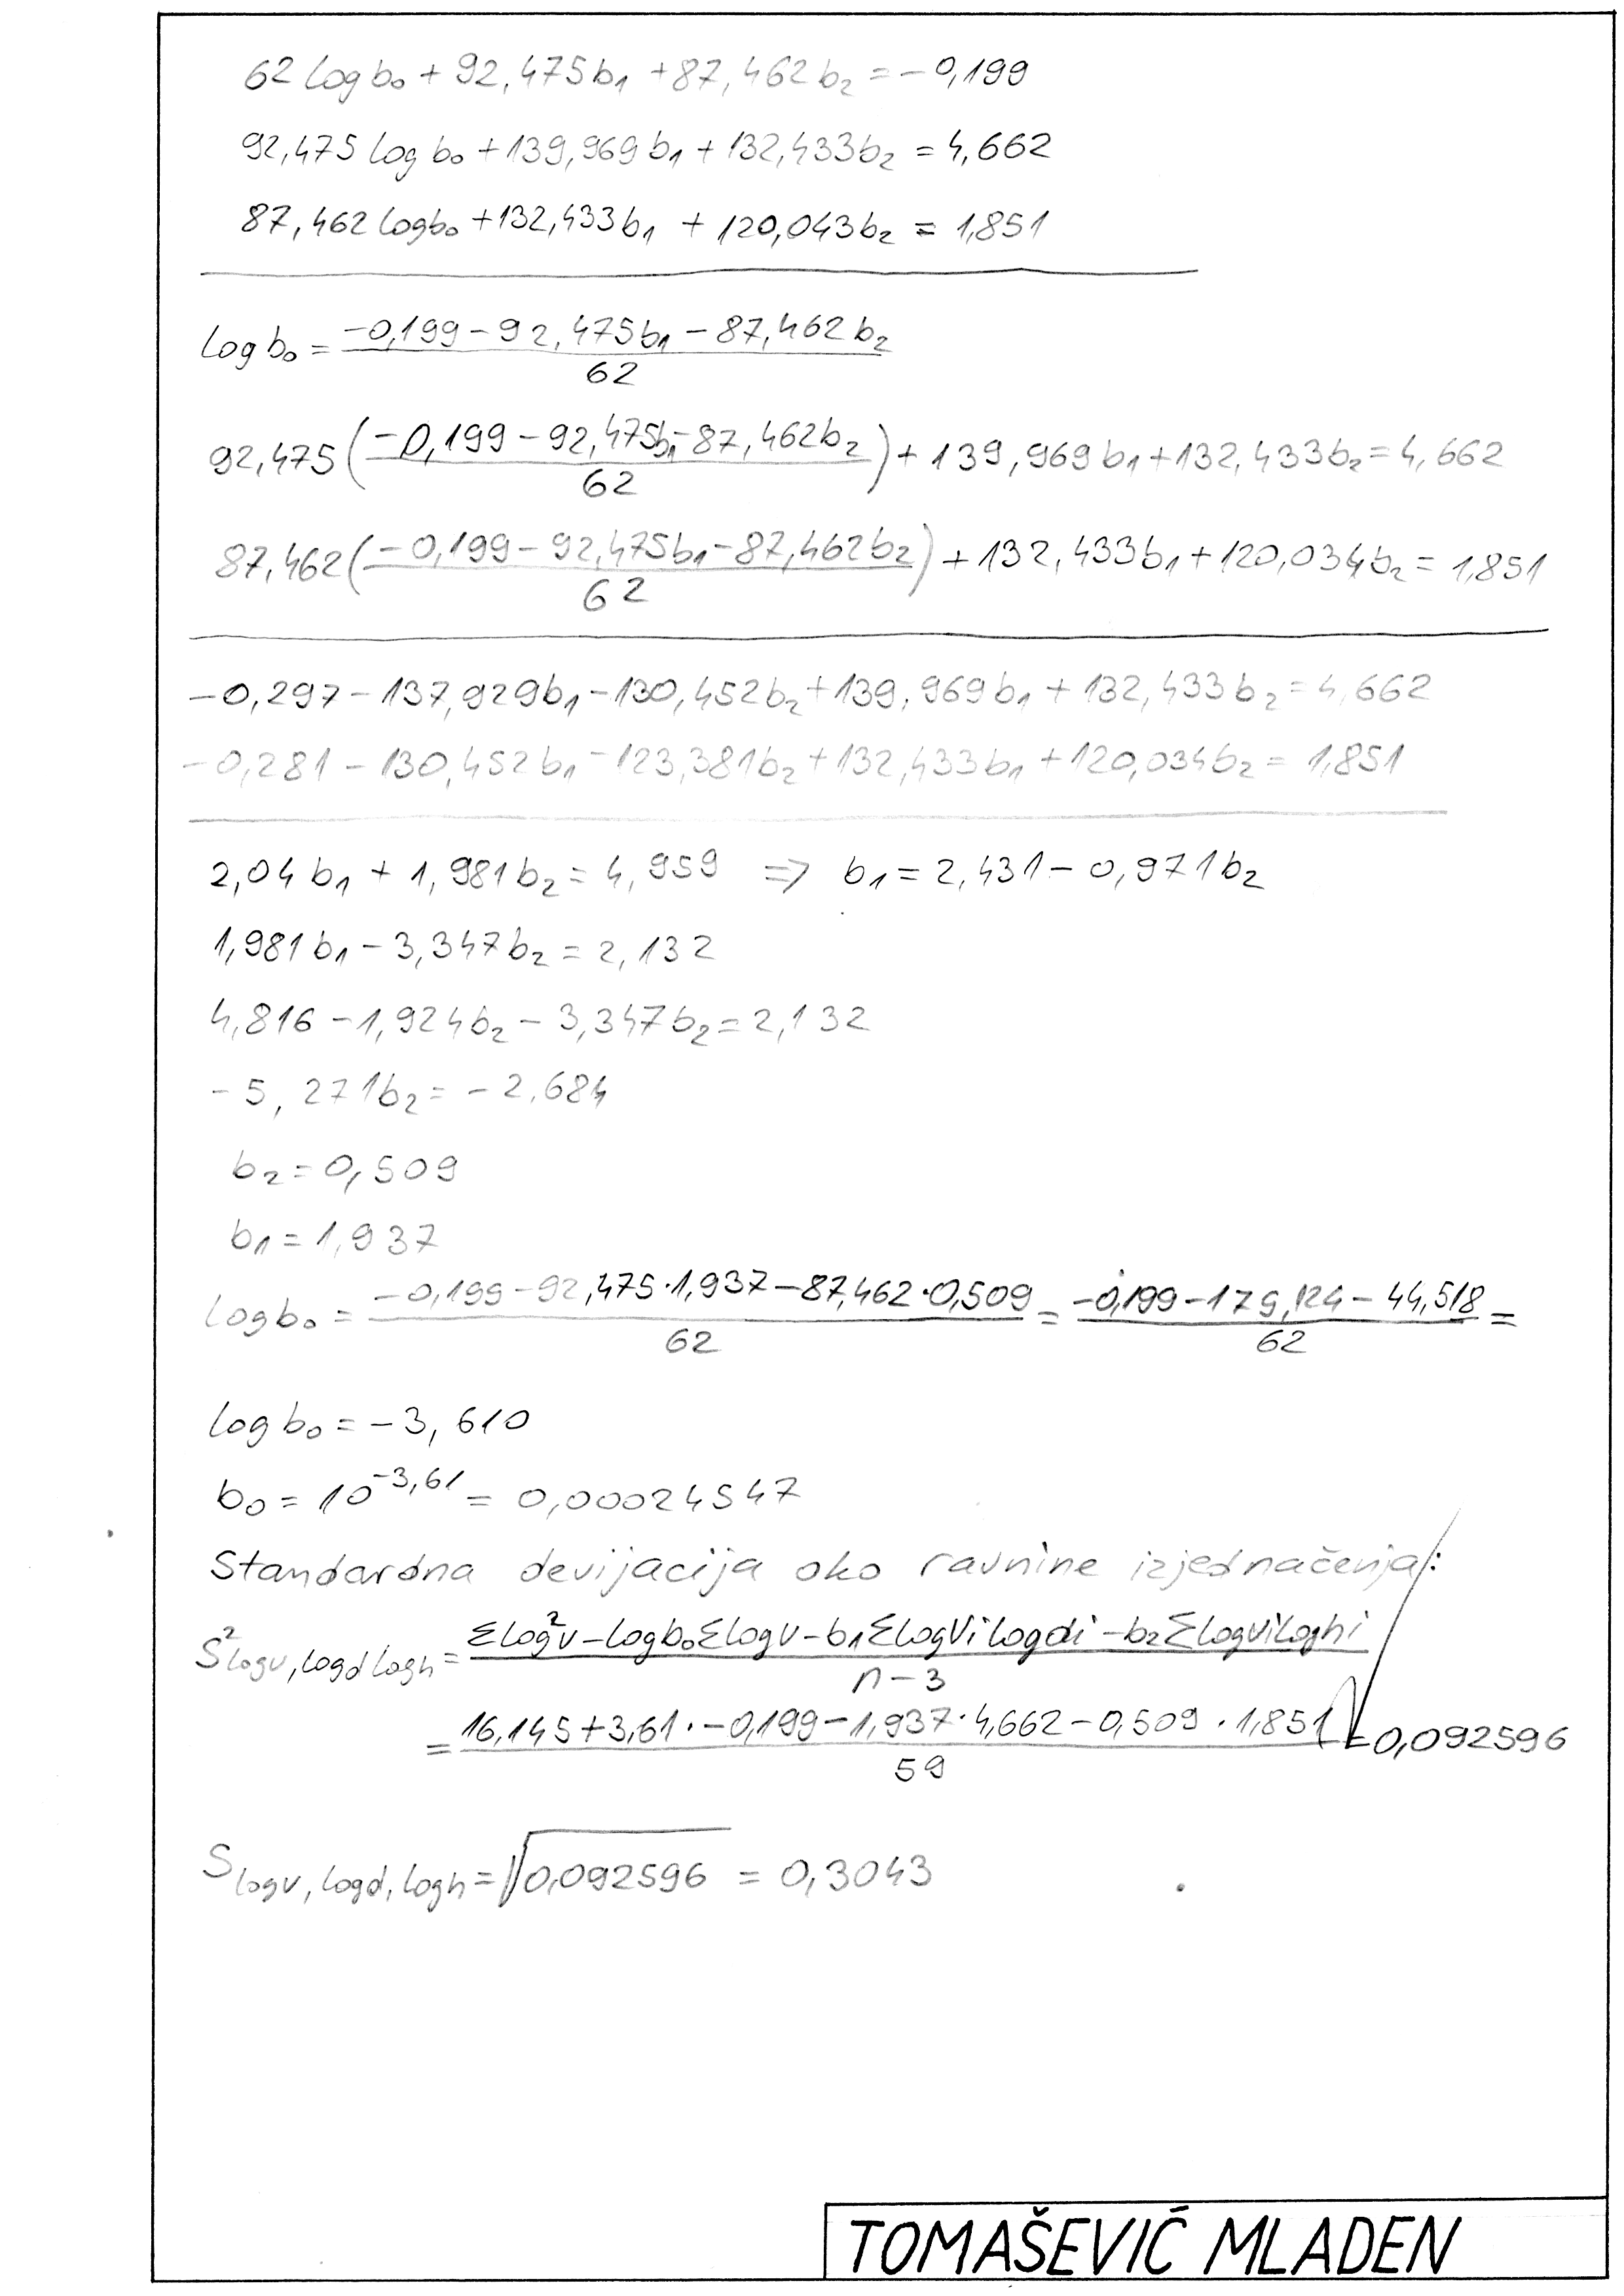 62 log b₀ + 92,475b₁ + 87,462b₂ = -0,199
92,475 log b₀ + 139,969b₁ + 132,433b₂ = 4,662
87,462 log b₀ + 132,433b₁ + 120,043b₂ = 1,851
log b₀ = (-0,199 - 92,475b₁ - 87,462b₂) / 62
92,475 ((-0,199 - 92,475b₁ - 87,462b₂) / 62) + 139,969b₁ + 132,433b₂ = 4,662
87,462 ((-0,199 - 92,475b₁ - 87,462b₂) / 62) + 132,433b₁ + 120,034b₂ = 1,851
-0,297 - 137,929b₁ - 130,452b₂ + 139,969b₁ + 132,433b₂ = 4,662
-0,281 - 130,452b₁ - 123,381b₂ + 132,433b₁ + 120,034b₂ = 1,851
2,04b₁ + 1,981b₂ = 4,959 => b₁ = 2,431 - 0,971b₂
1,981b₁ - 3,347b₂ = 2,132
4,816 - 1,924b₂ - 3,347b₂ = 2,132
-5,271b₂ = -2,684
b₂ = 0,509
b₁ = 1,937
log b₀ = (-0,199 - 92,475·1,937 - 87,462·0,509) / 62 = (-0,199 - 179,124 - 44,518) / 62 =
log b₀ = -3,610
b₀ = 10^-3,61 = 0,00024547
Standardna devijacija oko ravnine izjednačenja:
S² logv, logd logh = (Σlog²v - logb₀Σlogv - b₁Σlogvilogdi - b₂Σlogviloghi) / n-3
= (16,145 + 3,61·-0,199 - 1,937·4,662 - 0,509·1,851) / 59 = 0,092596
S logv, logd, logh = √0,092596 = 0,3043
TOMAŠEVIĆ MLADEN